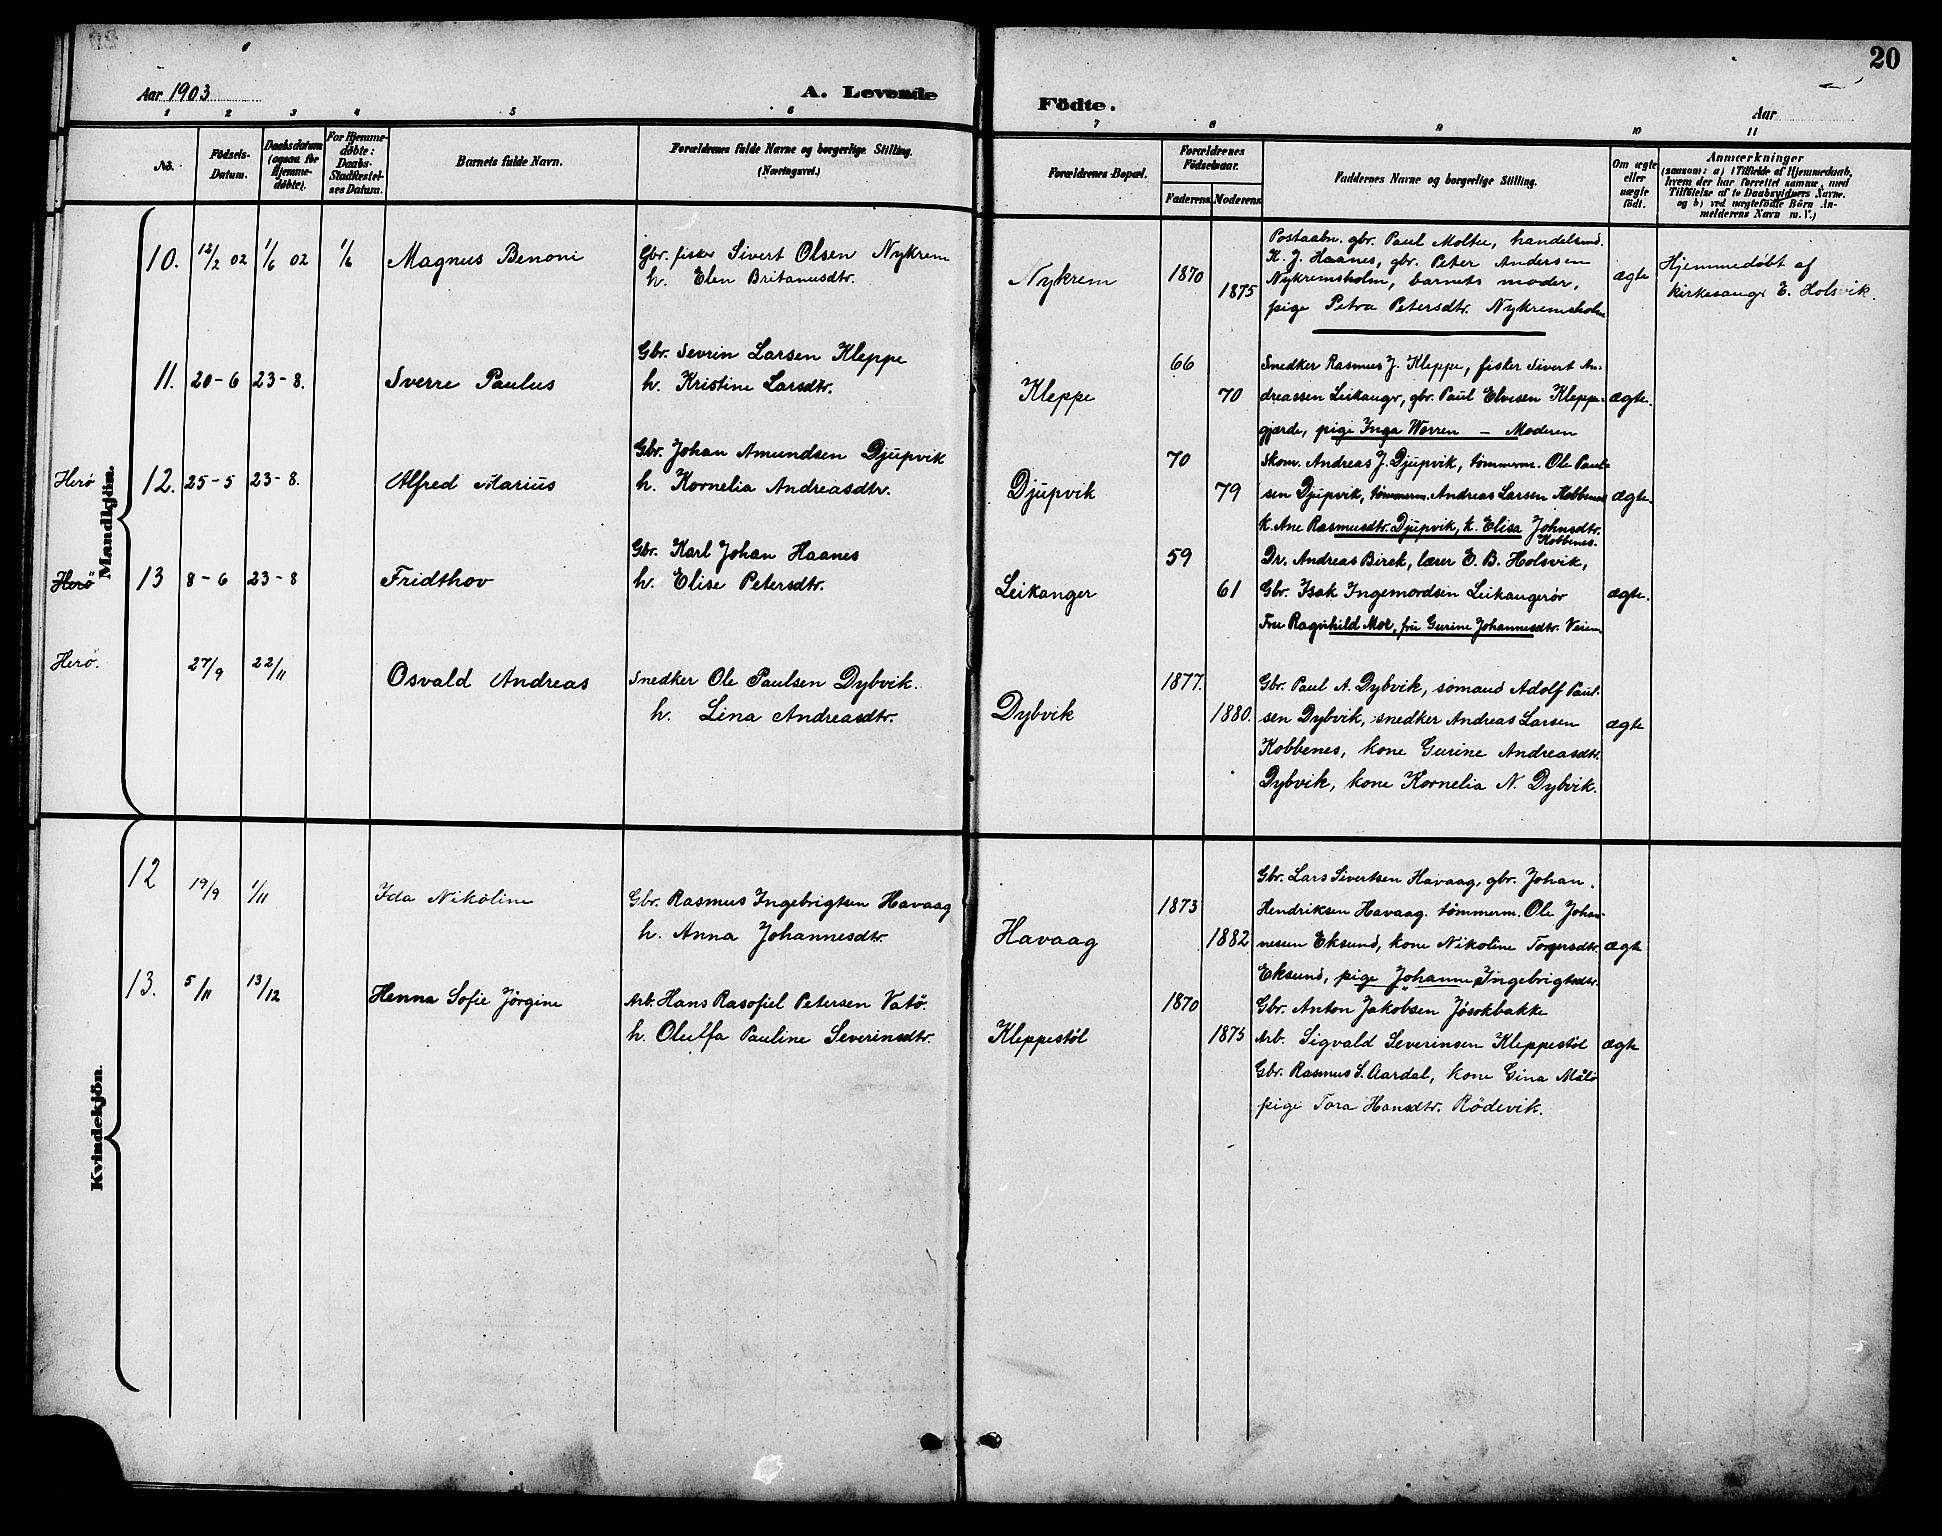 20
Aar 1903
A. Levende
Födte.
Aar
1 2 3 4 5 6
7 8 9 10 11
No.
Fødsels-
Datum.
Daabsdatum
(ogsaa for
Hjemme-
døbte).
For Hjemme-
døbte:
Daabs-
Stadfæstel-
ses Datum.
Barnets fulde Navn.
Forældrenes fulde Navne og borgerlige Stilling.
(Næringsvei.)
Forældrenes Bopæl.
Forældrenes
Fødselsaar.
Faderens. Moderens.
Faddernes Navne og borgerlige Stilling.
Om ægte
eller
uægte
født.
Anmærkninger
(saasom: a) i Tilfælde af Hjemmedaab,
hvem der har forrettet samme, med
Tilföielse af to Daabsvidners Navne.
og b) ved uægtefödte Börn An-
melderens Navn m. V.)
Mandkjön.
10. 12/2 02 1/6 02 1/6 Magnus Benoni
Gbr. fisker Sivert Olsen Nykrem
h. Elen Britanusdtr.
Nykrem 1870 1875
Postaabn. gbr. Paul Molten, handelsmd.
K. J. Haanes, gbr. Peter Andersen
Nykremsholm, barnets moder,
pige Petra Petersdtr. Nykremsholm
ægte
Hjemmedöbt af
kirkesanger E. Holsvik.
11. 20-6 23-8. Sverre Paulus
Gbr. Sevrin Larsen Kleppe
h. Kristine Larsdtr.
Kleppe 66 70
Snedker Rasmus J. Kleppe, fisker Sivert An-
dreassen Leikanger, gbr. Paul Elvesen Kleppe-
gjærde, pige Inga Worren – Moderen
ægte.
Herö 12. 25-5 23-8. Alfred Marius
Gbr. Johan Amundsen Djupvik
h. Kornelia Andreasdtr.
Djupvik 70 79
Skom. Andreas J. Djupvik, tömmerm. Ole Paul-
sen Djupvik, tömmerm. Andreas Larsen Kobbenes
k. Ane Rasmusdtr. Djupvik, k. Elisa Johnsdtr.
Kobbenes.
ægte.
Herö 13 8-6 23-8 Fridthov
Gbr. Karl Johan Haanes
h. Elise Petersdtr.
Leikanger 59 61
Dr. Andreas Birek, lærer E. B. Holsvik,
Gbr. Isak Ingemordsen Leikangerör
Fru Ragnhild Moe, fru Gurine Johannesdtr. Veien
ægte.
Herö. 27/9 22/11 Osvald Andreas
Snedker Ole Paulsen Dybvik.
h. Lina Andreasdtr.
Dybvik 1877. 1880.
Gbr. Paul A. Dybvik, sömand Adolf Paul-
sen Dybvik, snedker Andreas Larsen
Kobbenes, kone Gurine Andreasdtr.
Dybvik, kone Kornelia N. Dybvik.
ægte
Kvindekjön.
12 19/9 1/11 Ida Nikoline
Gbr. Rasmus Ingebrigtsen Havaag
h. Anna Johannesdtr.
Havaag 1873 1882
Gbr. Lars Sivertsen Havaag, gbr. Johan
Hendriksen Havaag. tömmerm. Ole Johan-
nessen Eksund, kone Nikoline Torgersdtr.
Eksund, pige Johanne Ingebrigtsdtr.
ægte
13. 5/11 13/12 Henna Sofie Jörgine
Arb. Hans Rasofiel Petersen Vatö.
h. Olulfa Pauline Severinsdtr.
Kleppestöl 1870 1875
Gbr. Anton Jakobsen Jösokbakke
Arb. Sigvald Severinsen Kleppestöl
Gbr. Rasmus S. Aardal, kone Gina Målö
pige Tora Hansdtr. Rödevik.
ægte